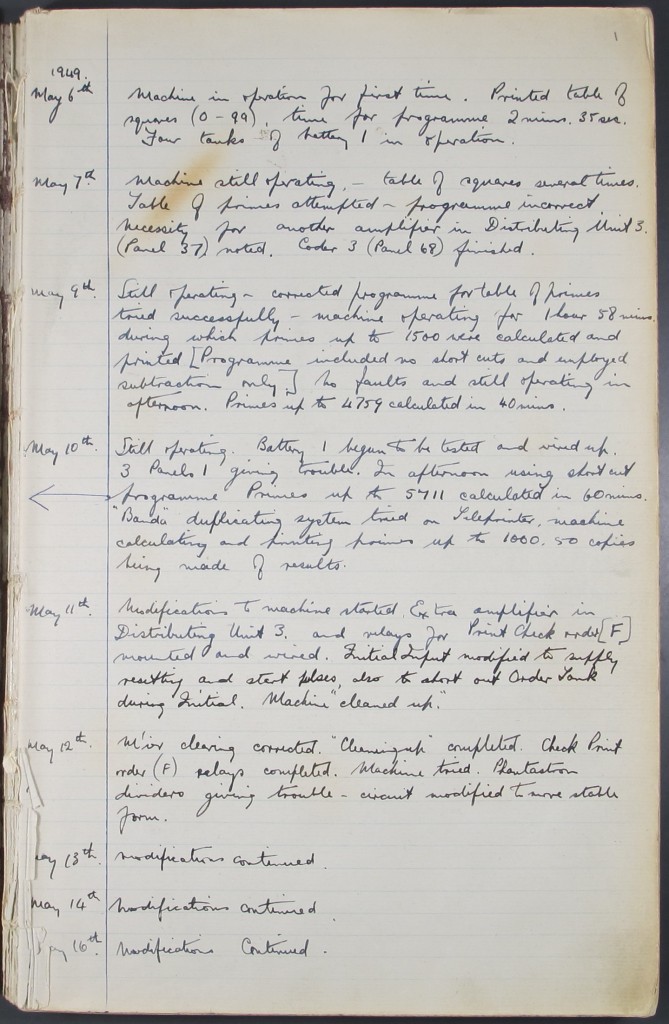 1
1949.
May 6th Machine in operation for first time. Printed table of
squares (0-99), time for programme 2 mins. 35 sec.
Four tanks of battery 1 in operation.
May 7th. Machine still operating, - table of squares several times.
Table of primes attempted - programme incorrect.
Necessity for another amplifier in Distributing Unit 3.
(Panel 37) noted. Coder 3 (Panel 68) finished.
May 9th. Still operating - corrected programme for table of primes
tried successfully - machine operating for 1 hour 58 mins.
during which primes up to 1500 were calculated and
printed [Programme included no short cuts and employed
subtraction only]. No faults and still operating in
afternoon. Primes up to 4759 calculated in 40 mins.
May 10th. Still operating. Battery 1 begun to be tested and wired up.
3 Panels 1 giving trouble. In afternoon using short cut
programme Primes up to 5711 calculated in 60 mins.
"Banda" duplicating system tried on Teleprinter, machine
calculating and printing primes up to 1000. 50 copies
being made of results.
May 11th. Modifications to machine started. Extra amplifier in
Distributing Unit 3. and relays for Print Check order [F]
mounted and wired. Initial Input modified to supply
resetting and start pulses, also to short out Order Tank
during Initial. Machine "cleaned up."
May 12th. M'ier clearing corrected. "Cleaning up" completed. Check Print
order (F) relays completed. Machine tried. Phantastron
dividers giving trouble - circuit modified to more stable
form.
May 13th. Modifications continued.
May 14th Modifications continued
May 16th. Modifications Continued.